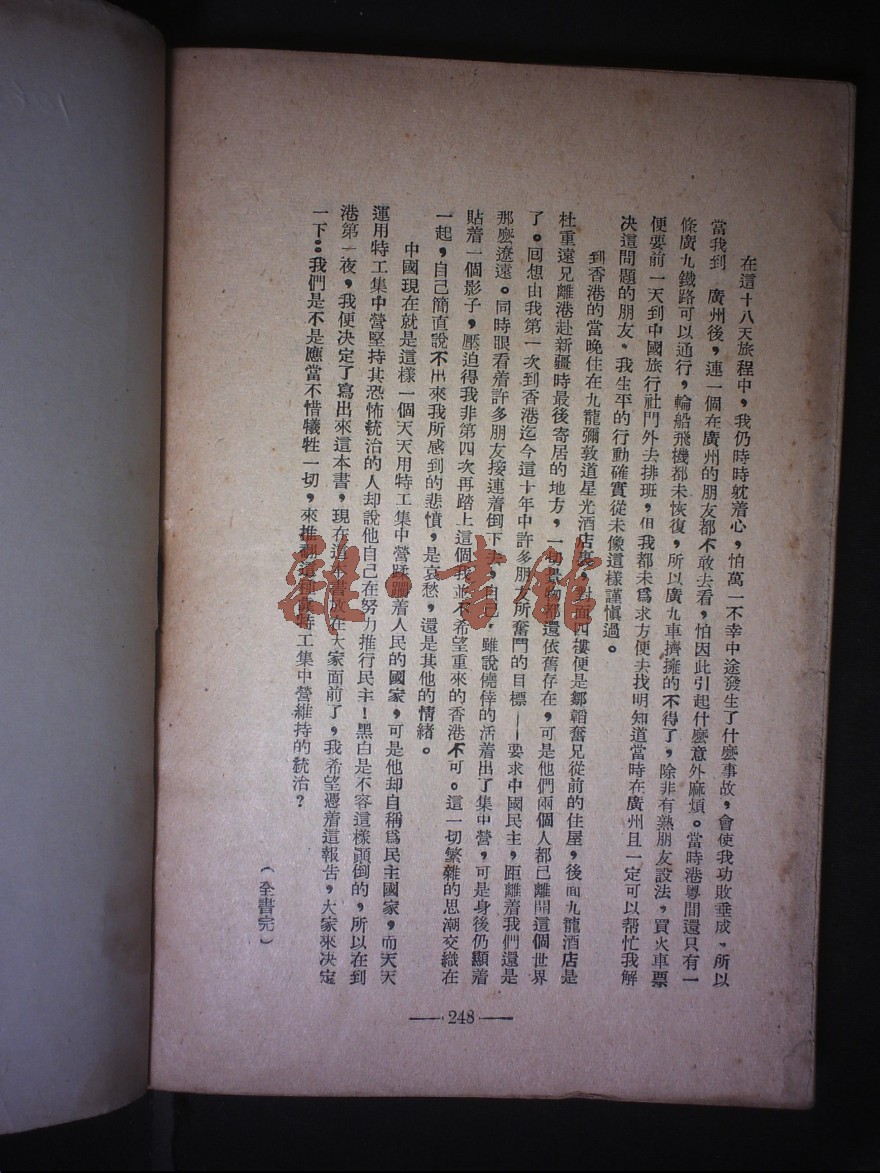 在這十八天旅程中，我仍時時躭着心，怕萬一不幸中途發生了什麼事故，會使我功敗垂成。所以
當我到　廣州後，連一個在廣州的朋友都不敢去看，怕因此引起什麼意外麻煩。當時港粵間還只有一
條廣九鐵路可以通行，輪船飛機都未恢復，所以廣九車擠擁的不得了，除非有熟朋友設法，買火車票
便要前一天到中國旅行社門外去排班，但我都未爲求方便去找明知道當時在廣州且一定可以帮忙我解
决這問題的朋友。我生平的行動確實從未像這樣謹慎過。
到香港的當晚住在九龍彌敦道星光酒店裏，對面四樓便是鄒韜奮兄從前的住屋，後面九龍酒店是
杜重遠兄離港赴新疆時最後寄居的地方，一切景物都還依舊存在，可是他們兩個人都已離開這個世界
了。回想由我第一次到香港迄今這十年中許多朋友所奮鬥的目標——要求中國民主，距離着我們還是
那麽遼遠。同時眼看着許多朋友接連着倒下去，自己，雖說僥倖的活着出了集中營，可是身後仍顯着
貼着一個影子，壓迫得我非第四次再踏上這個我並不希望重來的香港不可。這一切繁雜的思潮交織在
一起，自己簡直說不出來我所感到的悲憤，是哀愁，還是其他的情緒。
中國現在就是這樣一個天天用特工集中營蹂躪着人民的國家，可是他却自稱爲民主國家，而天天
運用特工集中營堅持其恐怖統治的人却說他自己在努力推行民主！黑白是不容這樣顚倒的，所以在到
港第一夜，我便决定了寫出來這本書，現在這本書放在大家面前了，我希望憑着這報告，大家來决定
一下：我們是不是應當不惜犧牲一切，來推動這種靠特工集中營維持的統治？
（全書完）
—— 248 ——
雜·書館